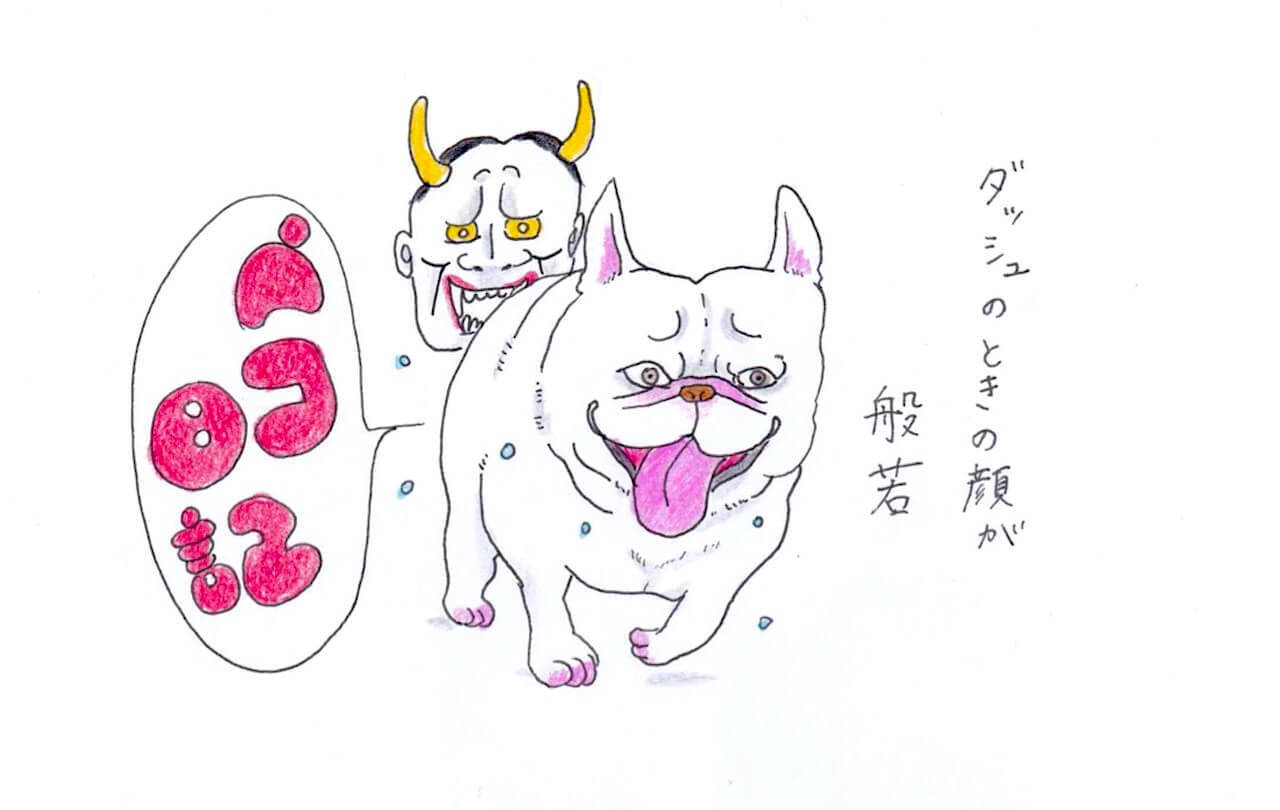 ダッシュのときの顔が
般若
日記